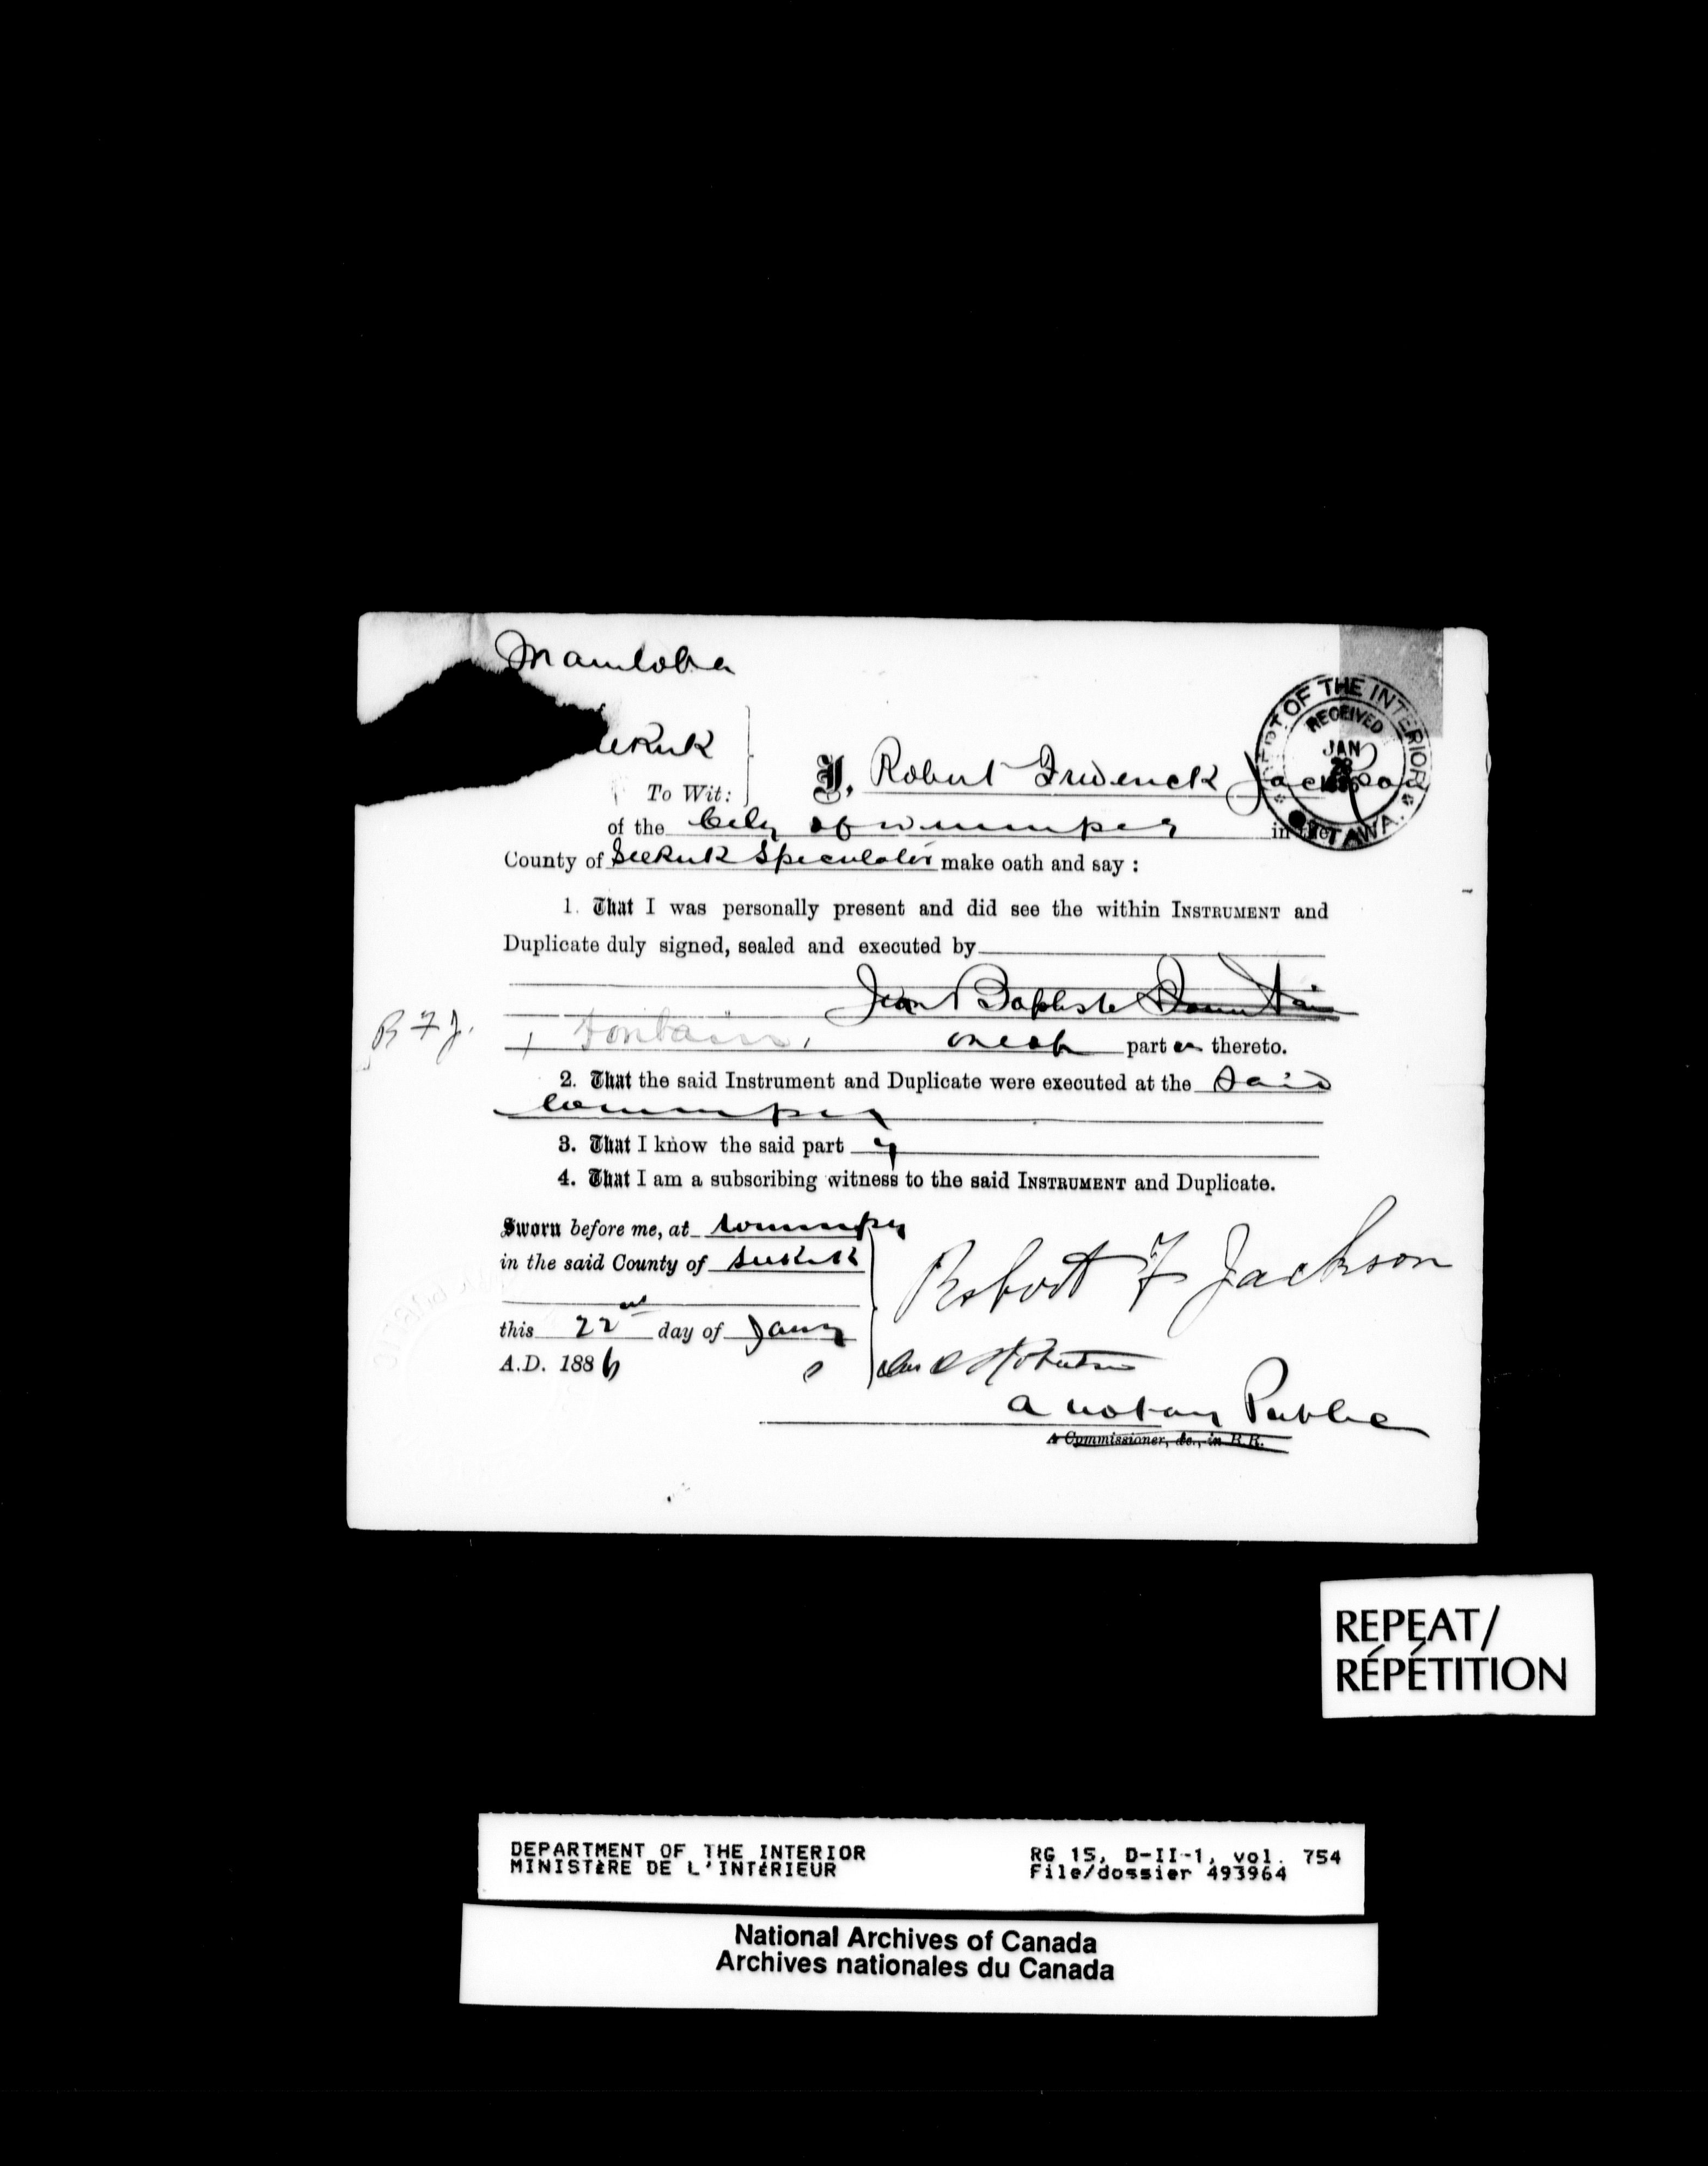 Manitoba
DEPT OF THE INTERIOR
RECEIVED
JAN
28
1886
OTTAWA.
To Wit:
I, Robert Frederick Jackson
of the City of Winnipeg in the
County of Selkirk Speculator make oath and say :
1. That I was personally present and did see the within INSTRUMENT and
Duplicate duly signed, sealed and executed by
Jean Baptiste Fountain
R F J. Fontain, one of part es thereto.
2. That the said Instrument and Duplicate were executed at the Said
Winnipeg
3. That I know the said part y
4. That I am a subscribing witness to the said INSTRUMENT and Duplicate.
Sworn before me, at Winnipeg
in the said County of Selkirk
this 22nd day of Jany
A.D. 1886
Robert F Jackson
a notary Public
A Commissioner, &c., in B.R.
REPEAT/
RÉPÉTITION
DEPARTMENT OF THE INTERIOR
MINISTÈRE DE L'INTÉRIEUR
RG 15, D-II-1, vol. 754
File/dossier 493964
National Archives of Canada
Archives nationales du Canada